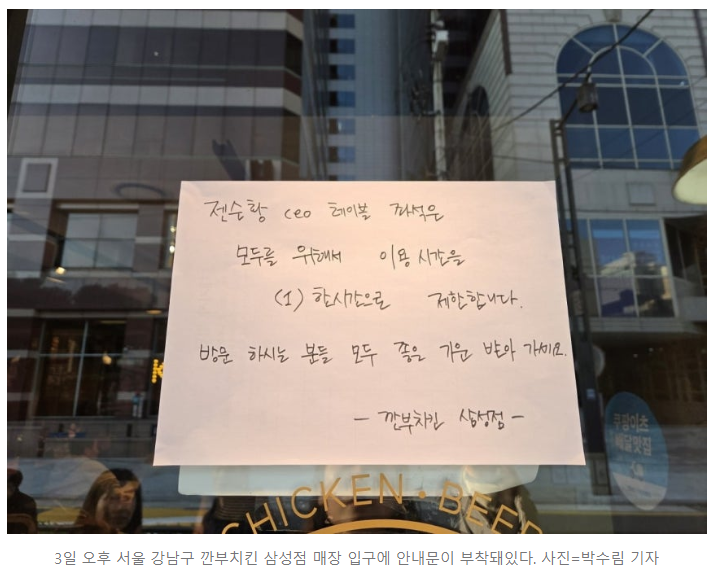 젠슨황 ceo 테이블 좌석은
모두를 위해서 이용 시간을
(1) 한시간으로 제한합니다.
방문 하시는 분들 모두 좋은 기운 받아 가세요.
- 깐부치킨 삼성점 -
쿠팡이츠
배달맛집
CHICKEN · BEER
3일 오후 서울 강남구 깐부치킨 삼성점 매장 입구에 안내문이 부착돼있다. 사진=박수림 기자